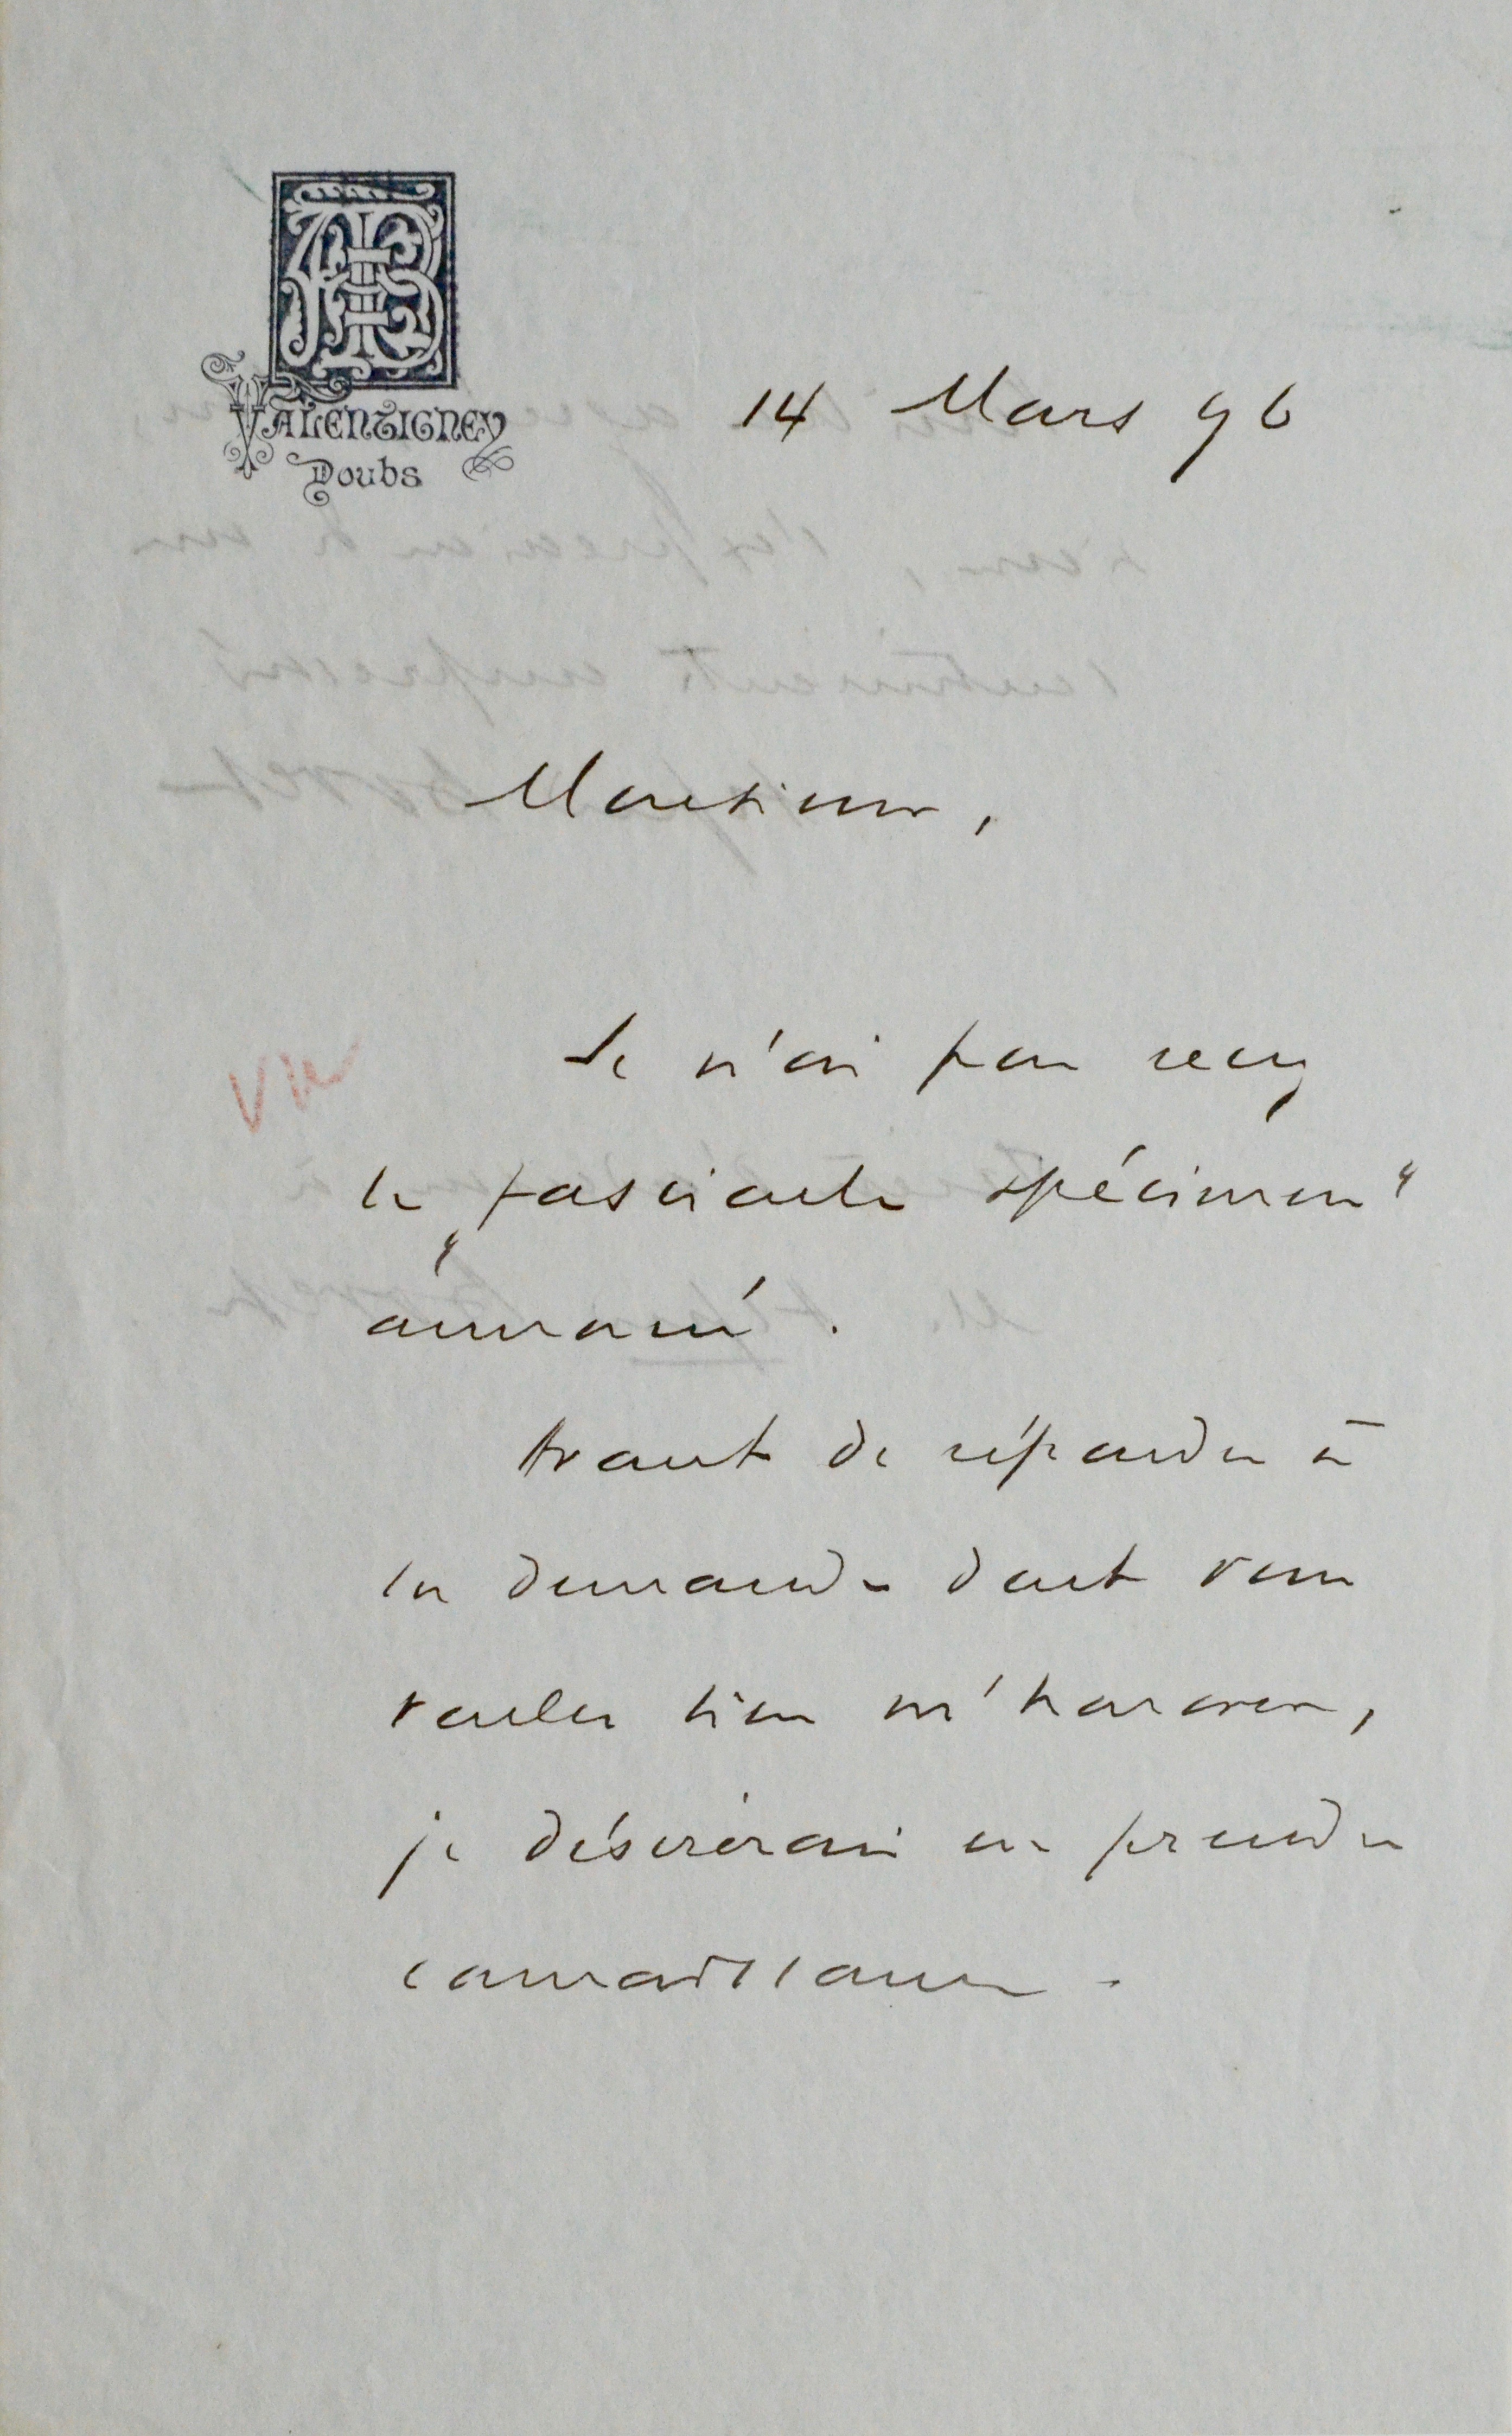 AB
VALENTIGNEY
Doubs
14 Mars 96
Monsieur,
Vu
Je n'ai pas reçu
le "fascicule spécimen"
annoncé.
Avant de répondre à
la demande dont vous
voulez bien m'honorer,
je désirerai en prendre
connaissance.